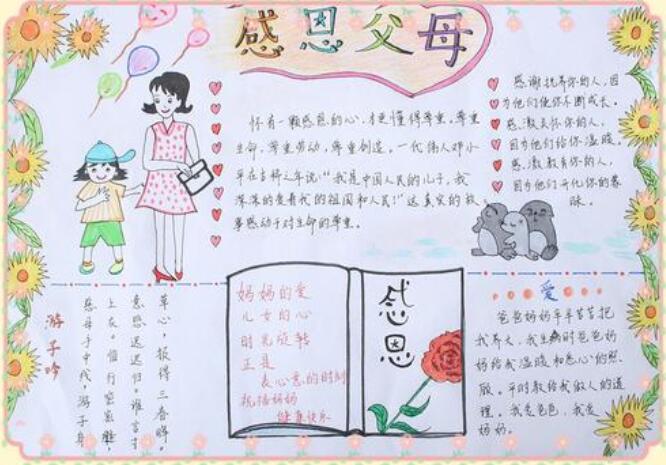 感恩父母
怀有一颗感恩的心,才更懂得尊重。尊重
生命、尊重劳动、尊重创造。一代伟人邓小
平在古稀之年说:"我是中国人民的儿子,我
深深的爱着我的祖国和人民!"这真实的故
事感动于对生命的尊重。
感谢抚养你的人,因
为他们使你不断成长。
感激关怀你的人,
因为他们给你温暖。
感激教育你的人,
因为他们开化你的
游子吟
慈母手中线,游子身
上衣。临行密密缝,
意恐迟迟归。谁言寸
草心,报得三春晖。
妈妈的爱
儿女的心
时光旋转
正是
表心意的时刻
祝福妈妈
健康快乐
感恩
爱
爸爸妈妈辛辛苦苦把
我养大,我生病时爸爸妈
妈给我温暖和悉心的照
顾。平时教给我做人的道
理。我爱爸爸,我爱
妈妈。